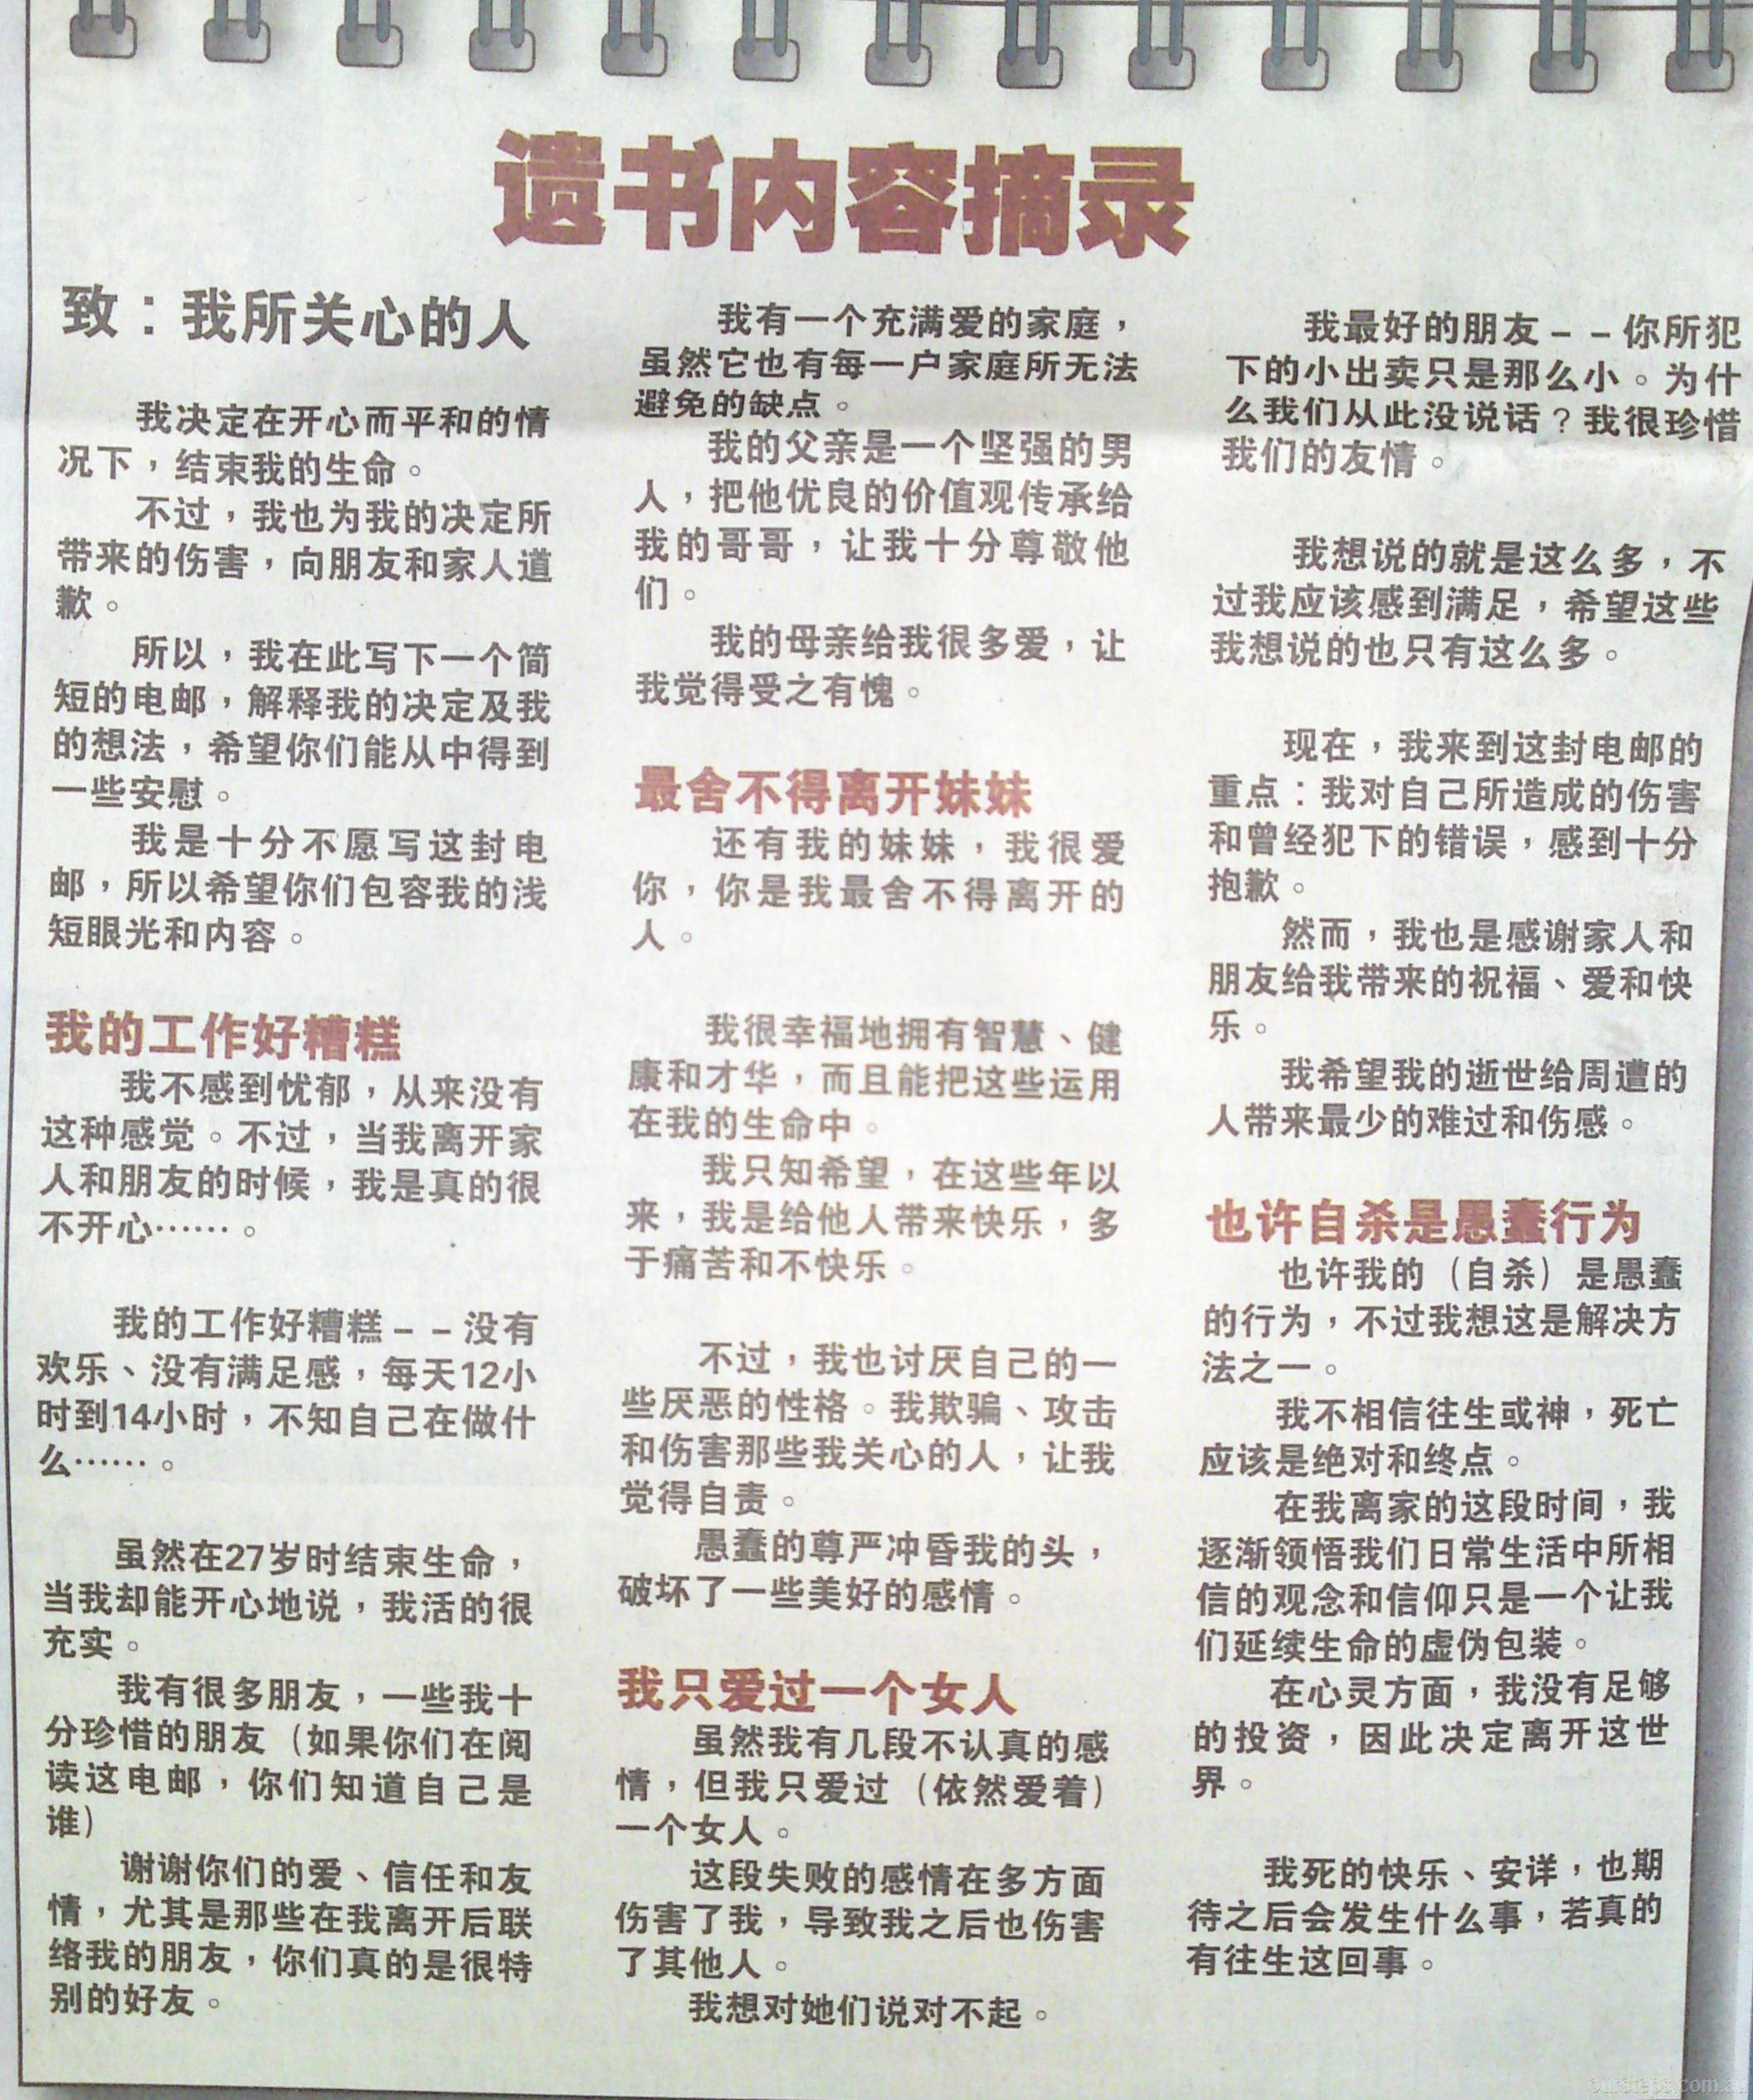 遗书内容摘录
致：我所关心的人
我决定在开心而平和的情
况下，结束我的生命。
不过，我也为我的决定所
带来的伤害，向朋友和家人道
歉。
所以，我在此写下一个简
短的电邮，解释我的决定及我
的想法，希望你们能从中得到
一些安慰。
我是十分不愿写这封电
邮，所以希望你们包容我的浅
短眼光和内容。
我的工作好糟糕
我不感到忧郁，从来没有
这种感觉。不过，当我离开家
人和朋友的时候，我是真的很
不开心……。
我的工作好糟糕－－没有
欢乐、没有满足感，每天12小
时到14小时，不知自己在做什
么……。
虽然在27岁时结束生命，
当我却能开心地说，我活的很
充实。
我有很多朋友，一些我十
分珍惜的朋友（如果你们在阅
读这电邮，你们知道自己是
谁）
谢谢你们的爱、信任和友
情，尤其是那些在我离开后联
络我的朋友，你们真的是很特
别的好友。
我有一个充满爱的家庭，
虽然它也有每一户家庭所无法
避免的缺点。
我的父亲是一个坚强的男
人，把他优良的价值观传承给
我的哥哥，让我十分尊敬他
们。
我的母亲给我很多爱，让
我觉得受之有愧。
最舍不得离开妹妹
还有我的妹妹，我很爱
你，你是我最舍不得离开的
人。
我很幸福地拥有智慧、健
康和才华，而且能把这些运用
在我的生命中。
我只知希望，在这些年以
来，我是给他人带来快乐，多
于痛苦和不快乐。
不过，我也讨厌自己的一
些厌恶的性格。我欺骗、攻击
和伤害那些我关心的人，让我
觉得自责。
愚蠢的尊严冲昏我的头，
破坏了一些美好的感情。
我只爱过一个女人
虽然我有几段不认真的感
情，但我只爱过（依然爱着）
一个女人。
这段失败的感情在多方面
伤害了我，导致我之后也伤害
了其他人。
我想对她们说对不起。
我最好的朋友－－你所犯
下的小出卖只是那么小。为什
么我们从此没说话？我很珍惜
我们的友情。
我想说的就是这么多，不
过我应该感到满足，希望这些
我想说的也只有这么多。
现在，我来到这封电邮的
重点：我对自己所造成的伤害
和曾经犯下的错误，感到十分
抱歉。
然而，我也是感谢家人和
朋友给我带来的祝福、爱和快
乐。
我希望我的逝世给周遭的
人带来最少的难过和伤感。
也许自杀是愚蠢行为
也许我的（自杀）是愚蠢
的行为，不过我想这是解决方
法之一。
我不相信往生或神，死亡
应该是绝对和终点。
在我离家的这段时间，我
逐渐领悟我们日常生活中所相
信的观念和信仰只是一个让我
们延续生命的虚伪包装。
在心灵方面，我没有足够
的投资，因此决定离开这世
界。
我死的快乐、安详，也期
待之后会发生什么事，若真的
有往生这回事。
oursteps.com.au